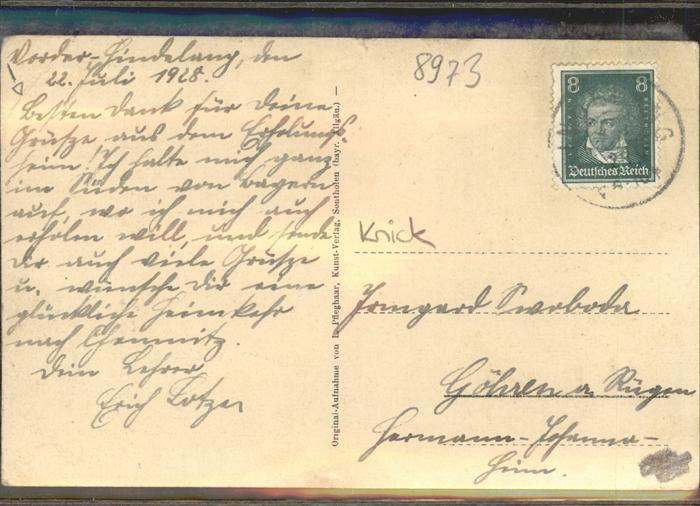 Vorder-Hindelang, den
22. Juli 1928.
Besten Dank für Deine
Grüsze aus dem Erholungs
heim! Ich halte mich ganz
im Süden von Bayern
auf, wo ich mich auch
erholen will, und sende
Dir auch viele Grüsze
u. wünsche Dir eine
glückliche Heimkehr
nach Chemnitz.
Dein Lehrer
Erich Lotzer
Original-Aufnahme von L. Pfleghaar, Kunst-Verlag, Sonthofen (bayr. Allgäu.)
8973
8 8
Deutsches Reich
Knick
Irmgard Swoboda
Göhren a. Rügen
Hermann-Johanna-
Heim.